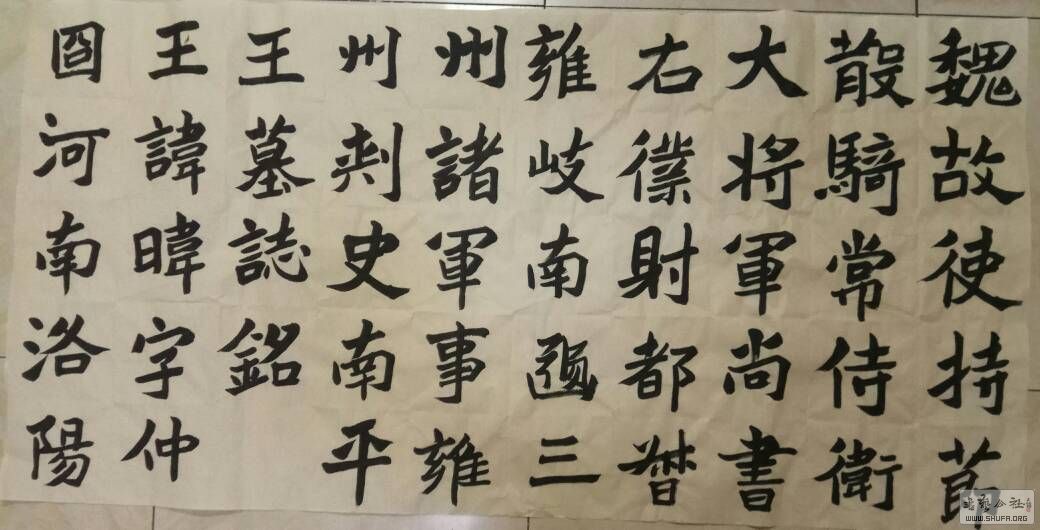 魏故使持節
散騎常侍衛
大將軍尚書
右僕射都督
雍岐南豳三
州諸軍事雍
州刺史南平
王墓誌銘
王諱暐字仲
囧河南洛陽
WWW.SHUFA.ORG